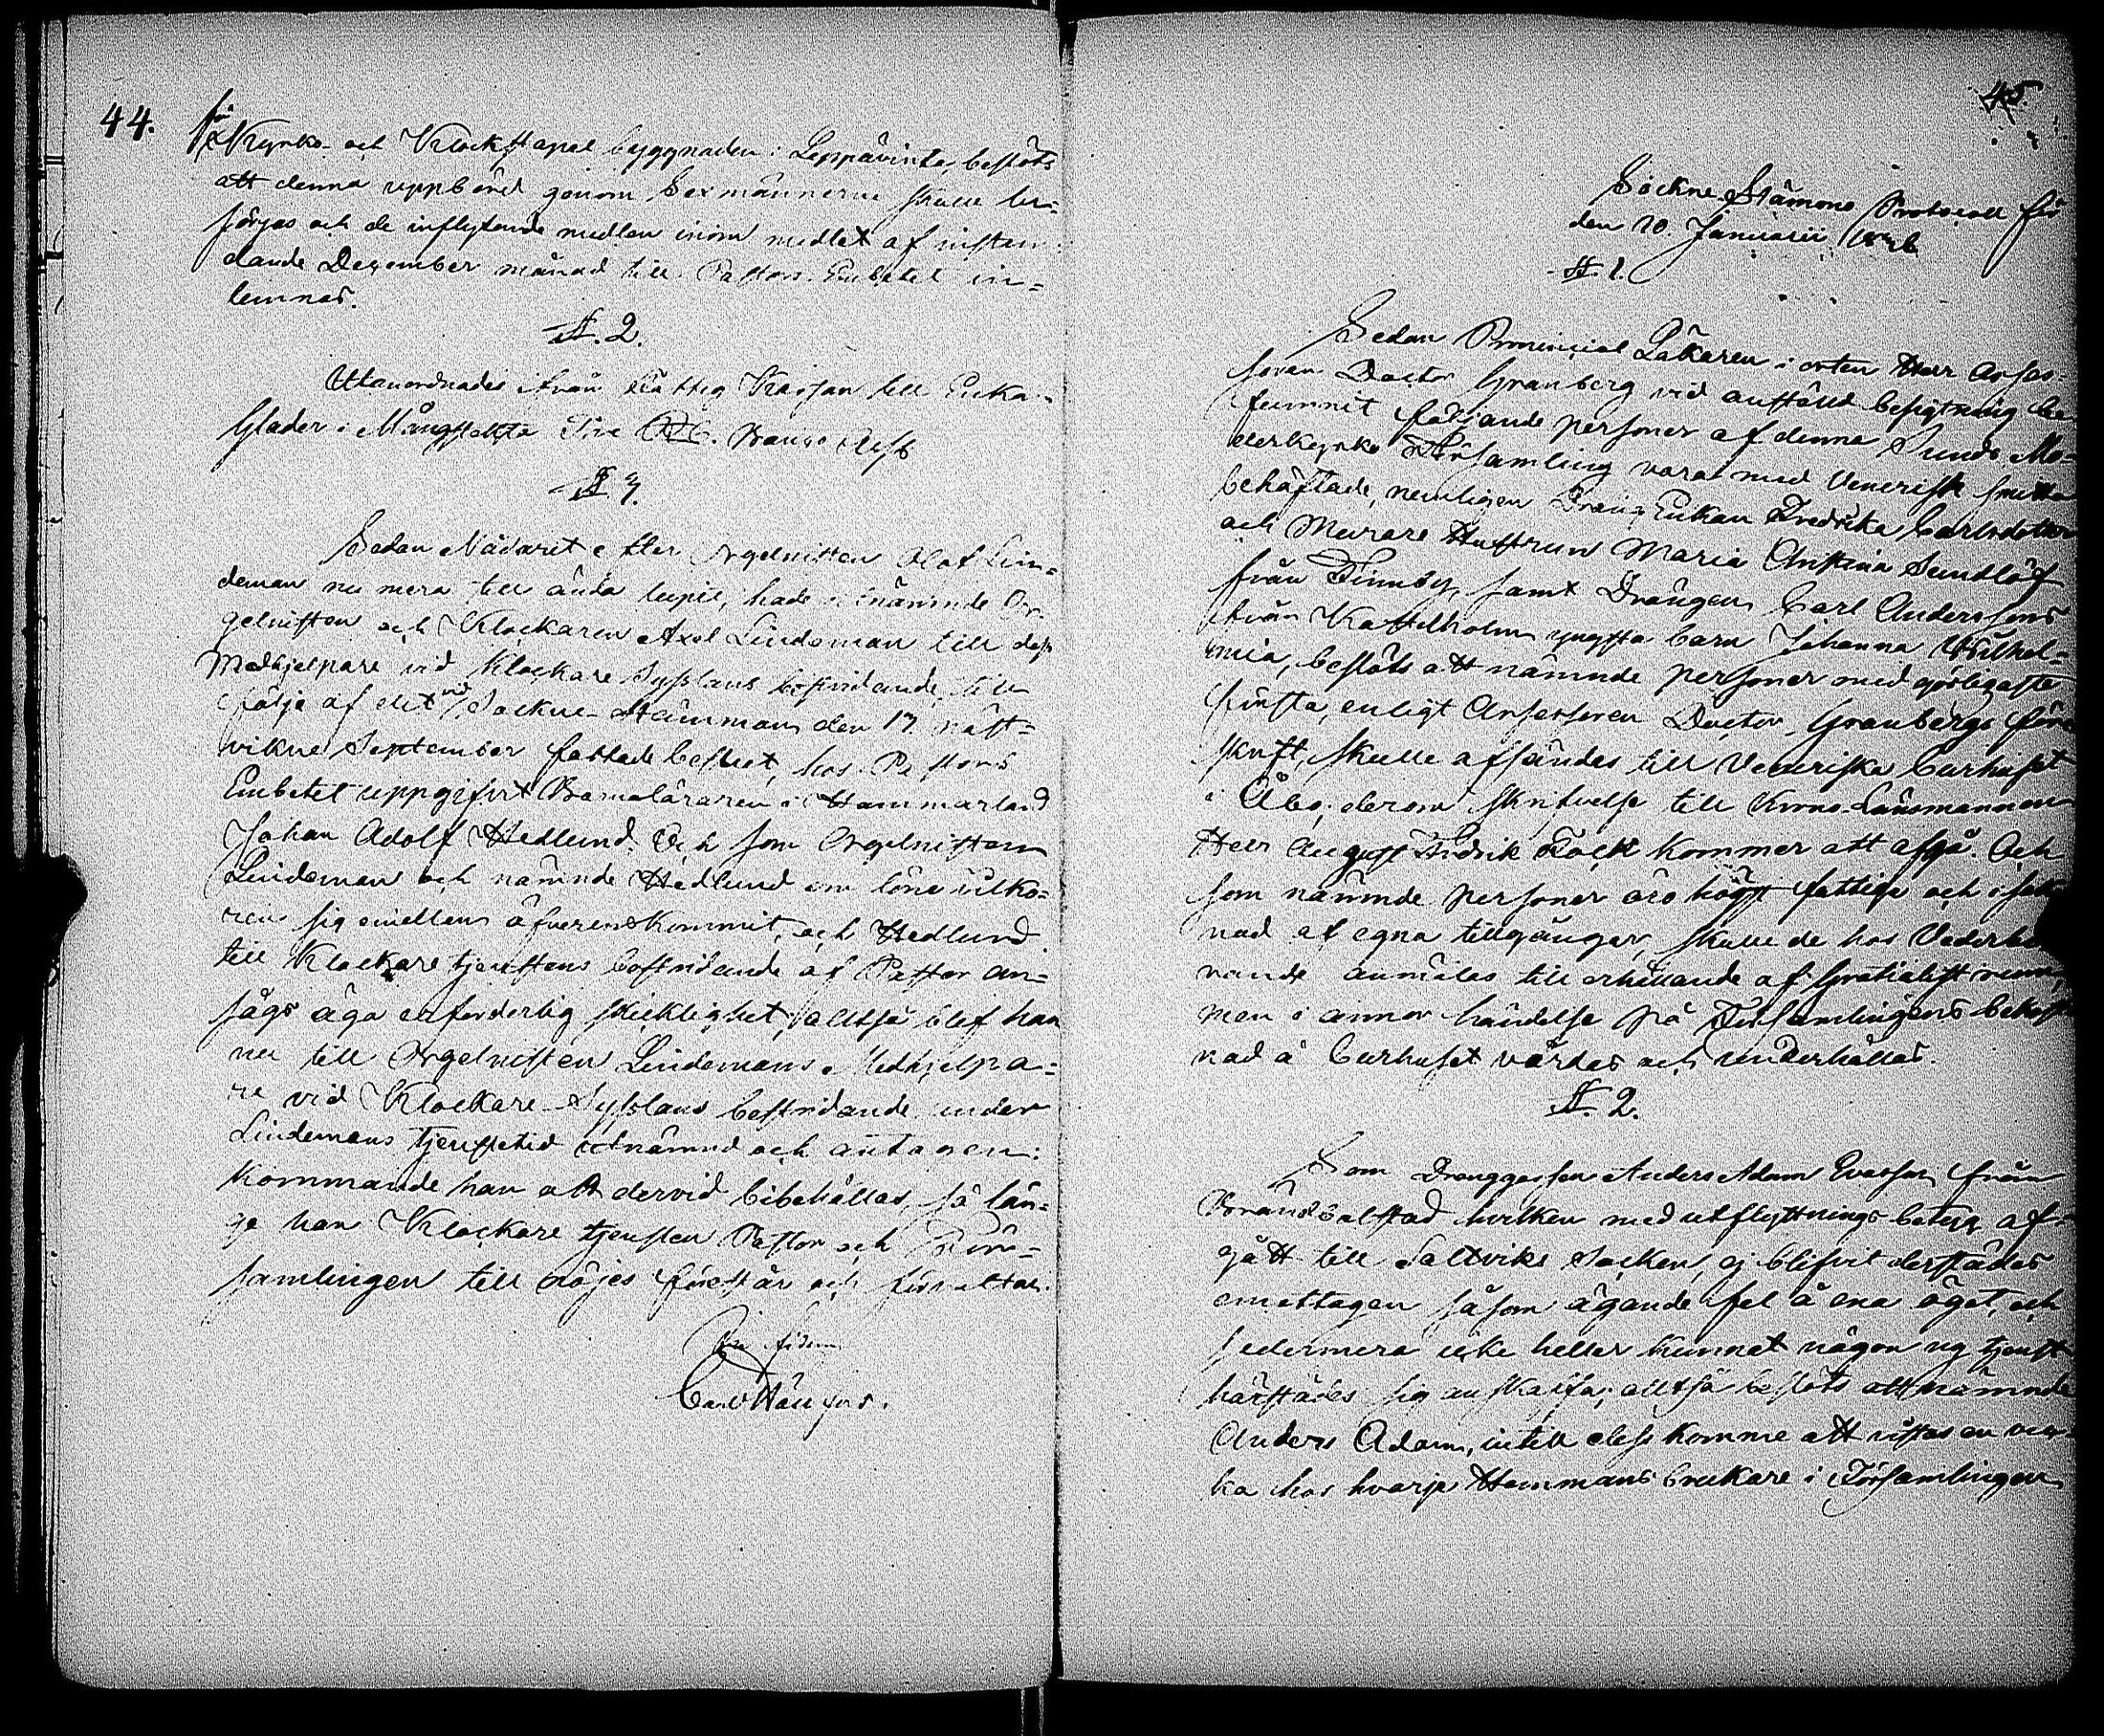 44.
för
Kyrko- och Klockstapel byggnaden i Leppävirta, beslöts
att denna uppbörd genom Sexmännerne skulle be=
sörjas och de inflytande medlen inom medlet af instun=
dande December månad till Pastors Embetet in=
lemnas.
§. 2.
Utanordnades ifrån Fattig Kassan till Enka
Glader i Mångstekta Tre Rub. Banco Ass.
§ 3.
Sedan Nådåret efter Orgelnisten Olof Lin=
deman nu mera till ända lupit, hade utnämnde Or=
gelnisten och Klockaren Axel Lindeman till dess
Medhjelpare vid Klockare Sysslans bestridande, till
följe af det vid Sockne-Stämman den 17. näst=
vikne September fattade beslut, hos Pastors
Embetet uppgifvit Barnaläraren i Hammarland
Johan Adolf Hedlund. Och som Orgelnisten
Lindeman och nämnde Hedlund om löne vilko=
ren sig emellan öfverenskommit, och Hedlund
till Klockare tjenstens bestridande af Pastor an=
sågs äga erforderlig skicklighet; alltså blef han
nu till Orgelnisten Lindemans Medhjelpa=
re vid Klockare-Sysslans bestridande under
Lindemans tjenstetid utnämnd och antagen:
kommande han att dervid bibehållas, så län=
ge han Klockare tjensten Pastor och För=
samlingen till nöjes förestår och förvaltar.
Carl Hänfors.
45.
Sockne-Stämmo Protocoll för
den 20. Januarii
§. 1.
Sedan Provincial Läkaren i orten Herr Asses=
soren Doctor Granberg vid anställd besigtning be=
funnit följande personer af denna Sunds Mo=
derkyrko Församling vara med Venerisk smitta
behäftade, nemligen Dräng Enkan Fredrika Carlsdotter
och Murare Hustrun Maria Christina Sundlöf
från Finnby, samt Drängen Carl Anderssons
från Kastelholm yngsta barn Johanna Wilhel=
mia, beslöts att nämnde personer med görligaste
första, enligt Assessoren Doctor Granbergs före
skrift, skulle afsändas till Veneriska Curhuset
i Åbo; derom skrifvelse till Krono-Länsmannen
Herr August Fredrik Fock kommer att afgå. Och
som nämnde personer äro högst fattige och i sak
nad af egna tillgångar, skulle de hos Vederbö
rande anmälas till erhållande af Gratialist rum,
men i annor händelse på Församlingens bekost
nad å Curhuset vårdas och underhållas.
§. 2.
Som Drenggossen Anders Adam Evasson från
Brändbolstad hvilken med utflyttnings-betyg af=
gått till Saltviks Socken, ej blifvit derstädes
emottagen såsom ägande fel å ena ögat, och
sedermera icke heller kunnat någon ny tjenst
härstädes sig anskaffa; alltså beslöts att nämnde
Anders Adam, intill dess komme att vistas en vec=
ka hos hvarje Hemmans brukare i Församlingen